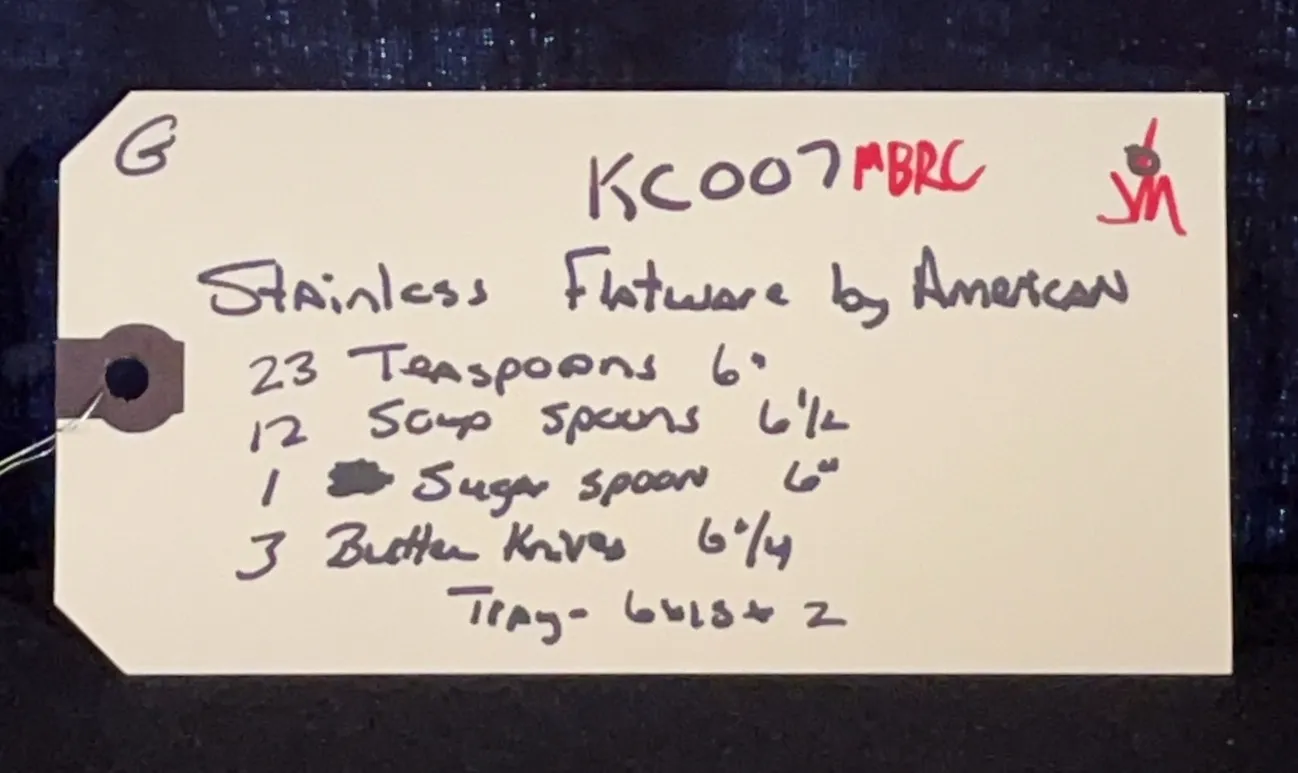 G
KC007 MBRC
JM
Stainless Flatware by American
23 Teaspoons 6"
12 Soup spoons 6 1/2
1 Sugar spoon 6"
3 Butter Knives 6 1/4
Tray-